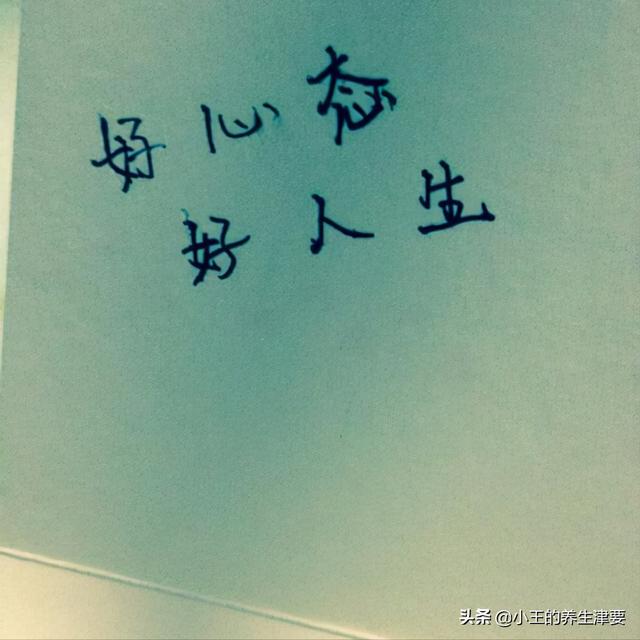 好心态
好人生
头条 @小王的养生津要